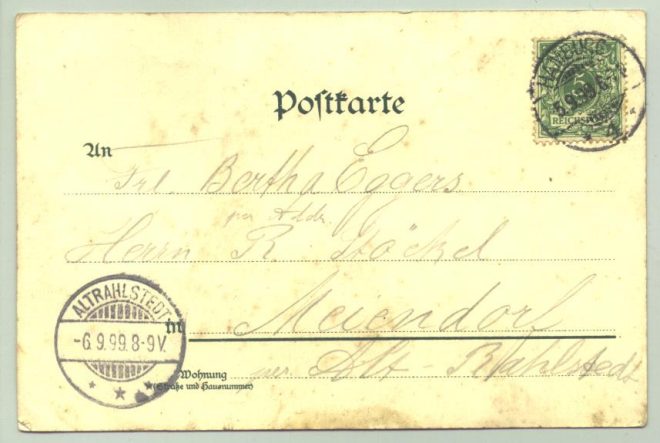 HAMBURG
5.9.99
5
REICHSPOST
Postkarte
An
Frl. Bertha Eggers
per Addr.
Herrn R. Stöckel
in Meiendorf
Wohnung
(Straße und Hausnummer)
Alt-Rahlstedt
ALTRAHLSTEDT
-6.9.99.8-9V.